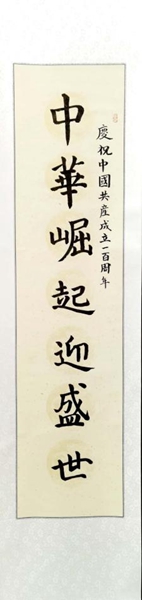 慶祝中國共産成立一百周年
中華崛起迎盛世